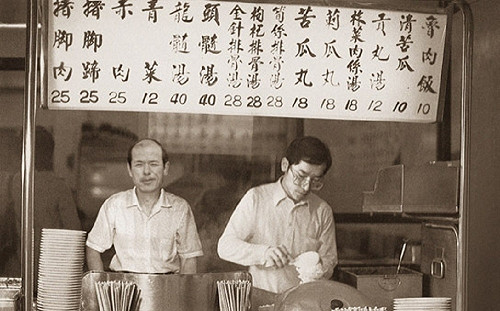 魯肉飯 10
清苦瓜 10
貢丸湯 12
榨菜肉係湯 18
莿瓜丸 18
苦瓜丸 18
筍係排骨湯 28
枸杞排骨湯 28
金針排骨湯 28
頭髓湯 40
龍髓湯 40
青菜 12
赤肉 25
豬脚蹄 25
豬脚肉 25